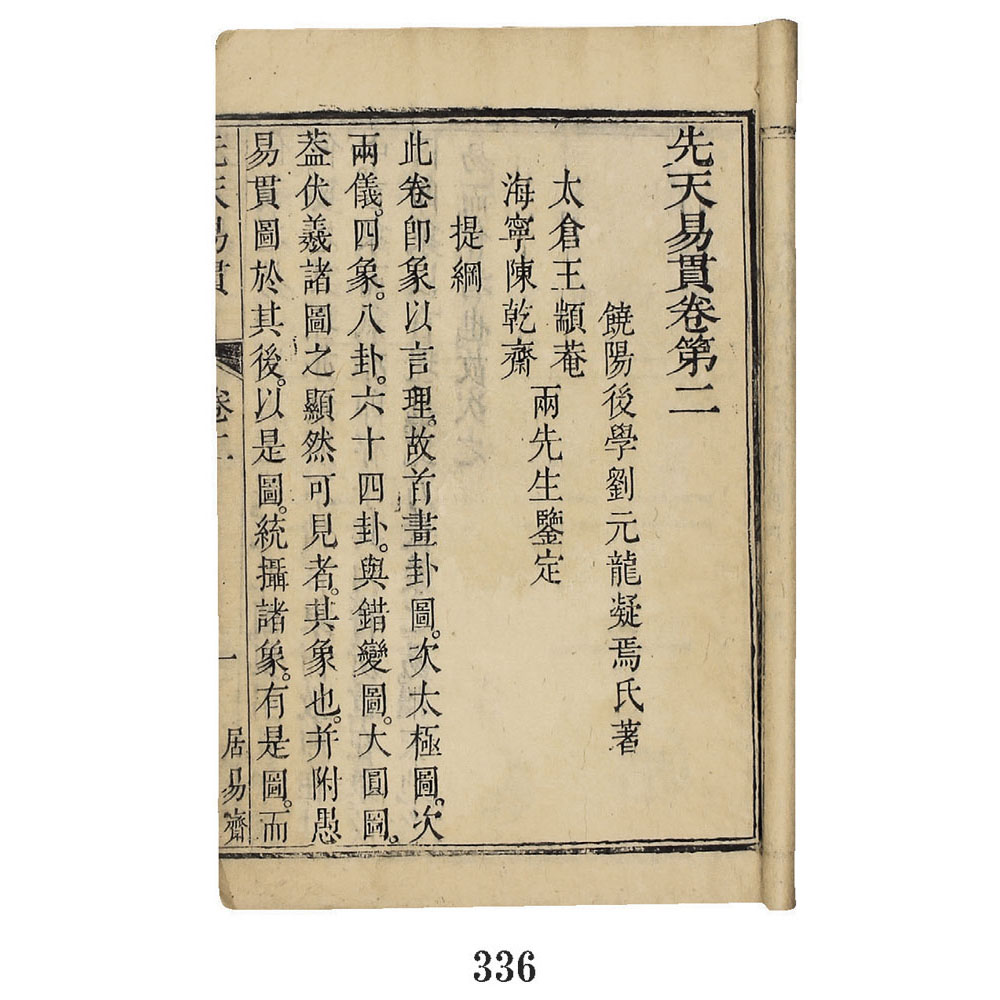 先天易貫卷第二
饒陽後學劉元龍凝焉氏著
太倉王顓菴
海寧陳乾齋
兩先生鑒定
提綱
此卷卽象以言理。故首畫卦圖。次太極圖。次
兩儀。四象。八卦。六十四卦。與錯變圖。大圓圖。
葢伏羲諸圖之顯然可見者。其象也。并附愚
易貫圖於其後。以是圖。統攝諸象。有是圖。而
先天易貫 卷二 一 居易齋
336